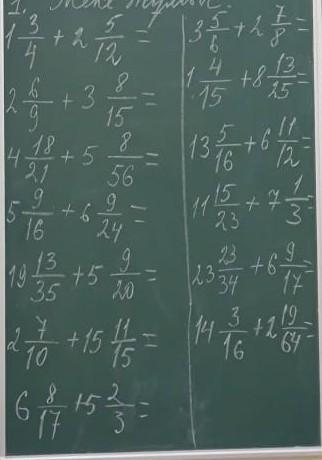 1.
1 3/4 + 2 5/12 =
2 6/9 + 3 8/15 =
4 18/21 + 5 8/56 =
5 9/16 + 6 9/24 =
19 13/35 + 5 9/20 =
2 7/10 + 15 11/15 =
6 8/17 + 5 2/3 =
3 5/6 + 2 7/8 =
1 4/15 + 8 13/25 =
13 5/16 + 6 11/12 =
11 15/23 + 7 1/3 =
23 23/34 + 6 9/17 =
14 3/16 + 2 19/64 =